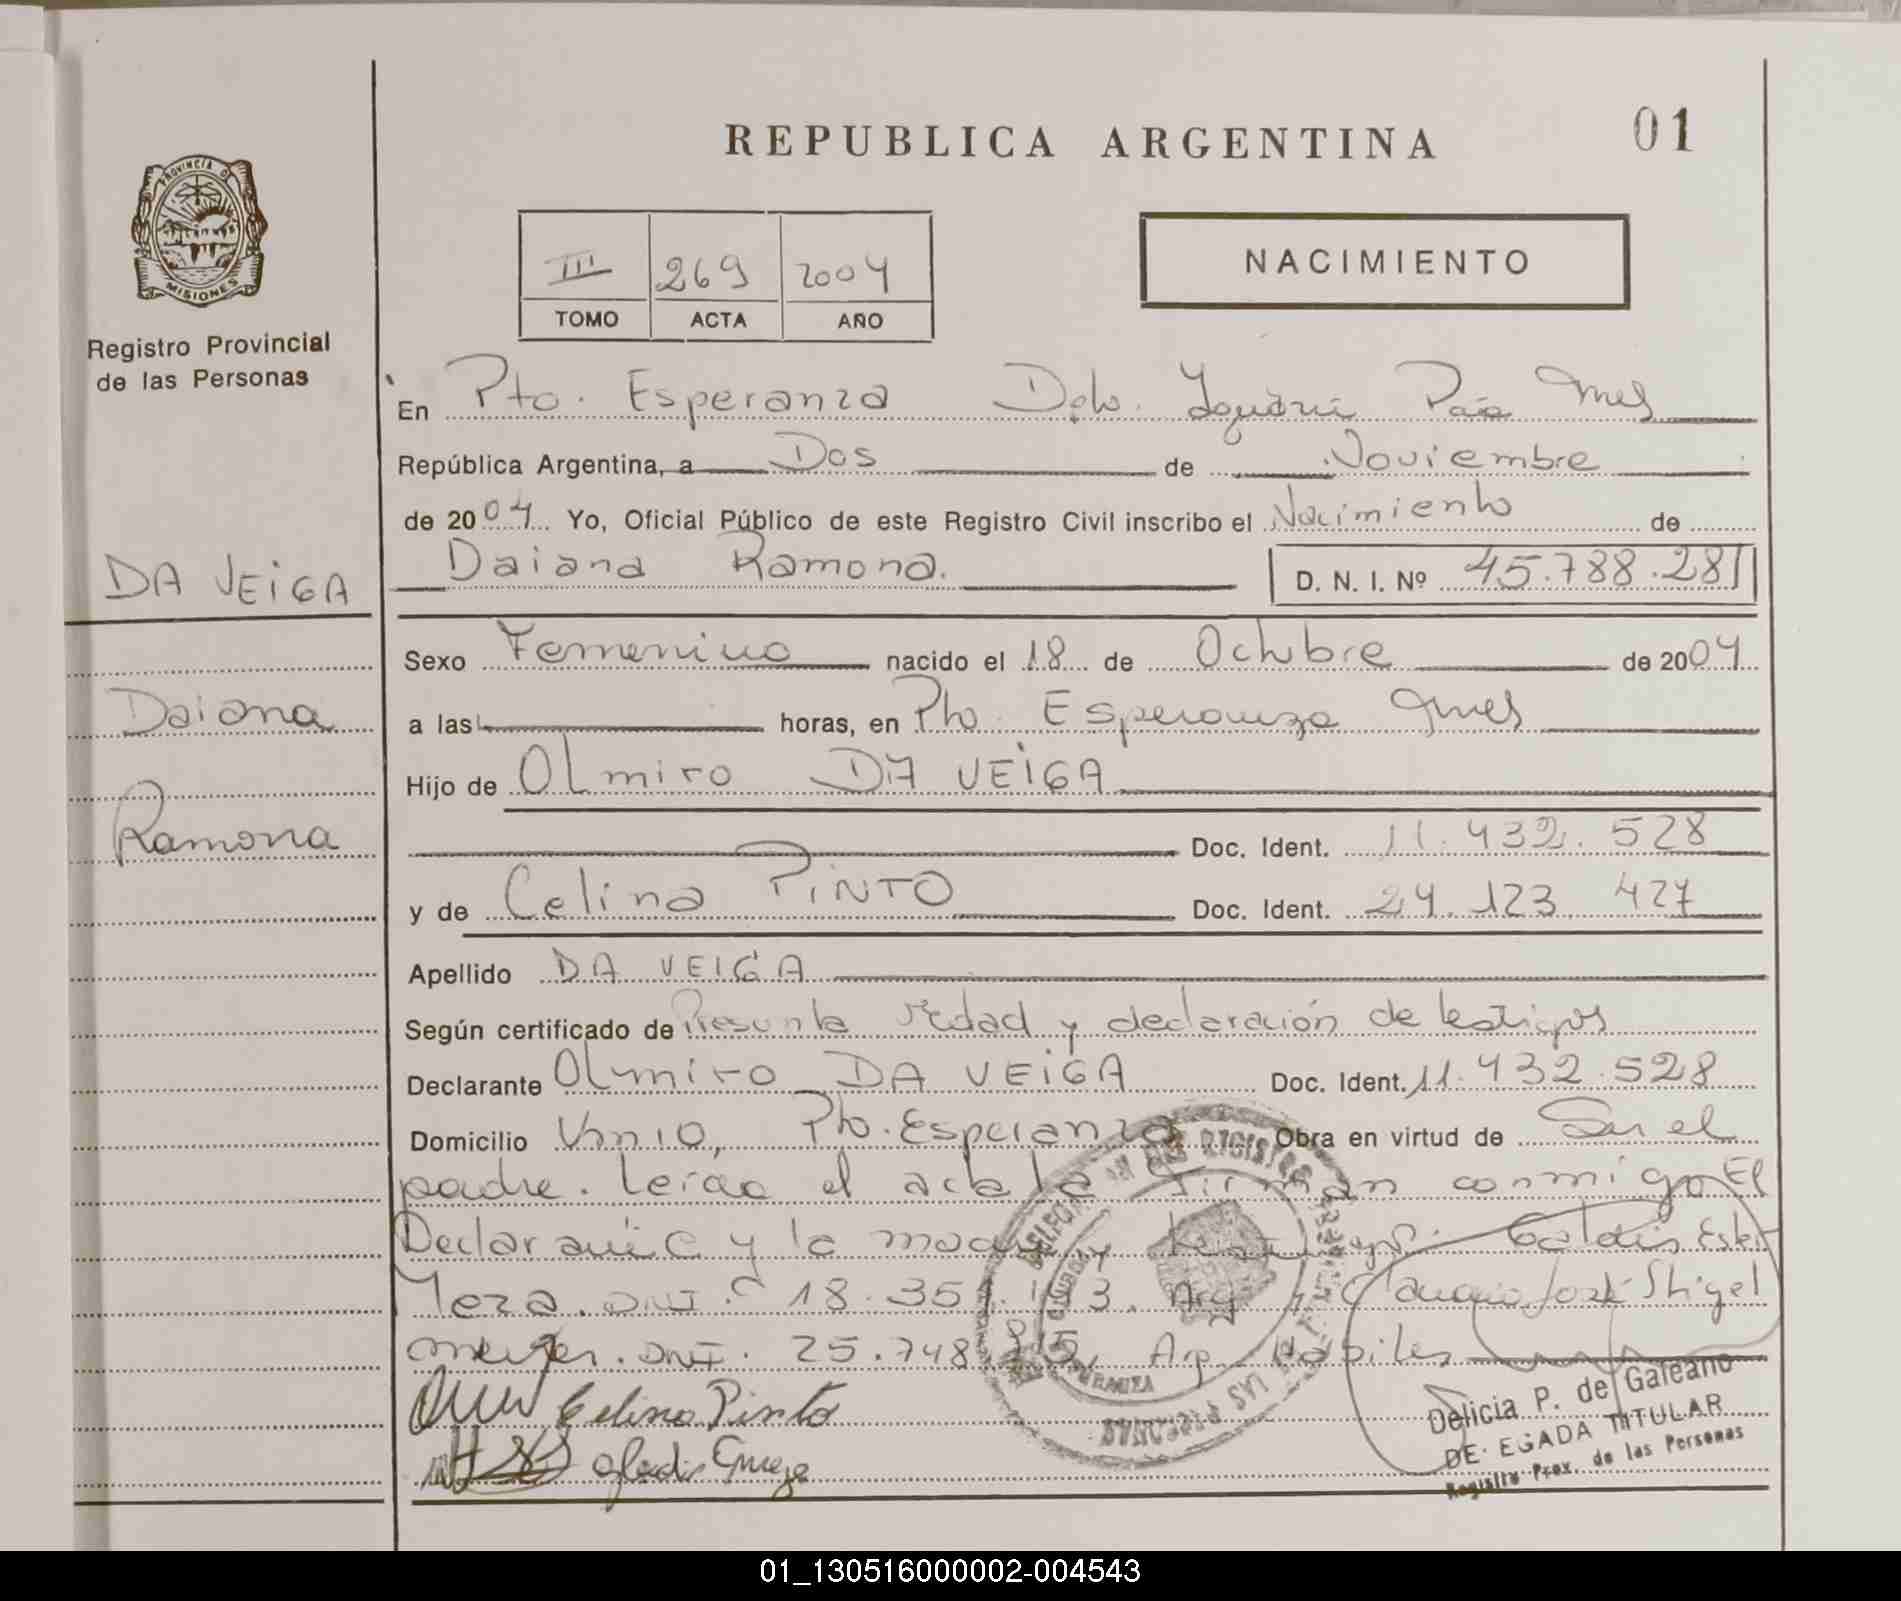 REPUBLICA ARGENTINA
01
PROVINCIA D
MISIONES
Registro Provincial
de las Personas
III 269 2004
TOMO ACTA AÑO
NACIMIENTO
En Pto. Esperanza Dpto. Iguazú Mnes
República Argentina, a Dos de Noviembre
de 2004 Yo, Oficial Público de este Registro Civil inscribo el Nacimiento de
DA VEIGA
Daiana Ramona. D. N. I. Nº 45.788.281
Sexo Femenino nacido el 18 de Octubre de 2004
Daiana
a las horas, en Pto. Esperanza Mnes
Hijo de Olmiro DA VEIGA
Ramona
Doc. Ident. 11.432.528
y de Celina PINTO Doc. Ident. 24.123.427
Apellido DA VEIGA
Según certificado de Presunta edad y declaración de testigos
Declarante Olmiro DA VEIGA Doc. Ident. 11.432.528
Domicilio Pto. Esperanza Obra en virtud de Ser el
padre. Leída el acta la firman conmigo El
Declarante y la madre y testigos
DNI 18.35
DNI. 25.748 Arg. Hábiles
Celina Pinto
Delicia P. de Galeano
DELEGADA TITULAR
Registro Prov. de las Personas
01_130516000002-004543